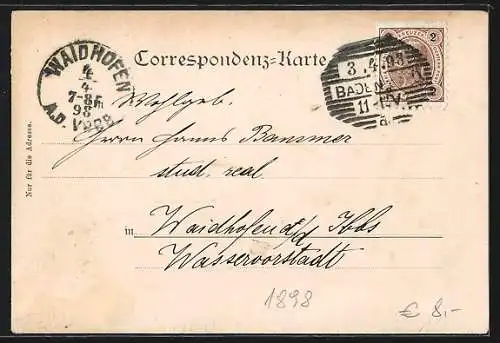 WAIDHOFEN
4
4
7-8F
98
A.D. YBBS
Correspondenz-Karte
KREUZER
2
3.4.98
BADEN
11-
Wohlgeb.
Herrn Hanns Bammer
stud. real
in Waidhofen a/d Ibbs
Wasservorstadt
Nur für die Adresse.
1898
€ 8,-